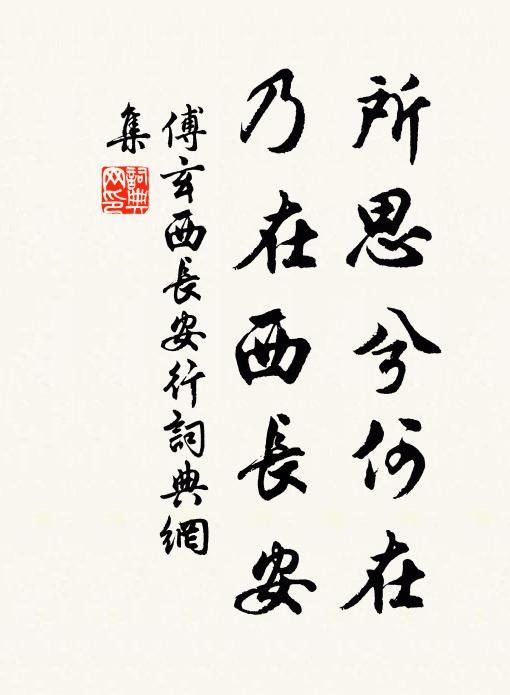 所思兮何在
乃在西長安
傅玄西長安行詞典網
集
詞典网印